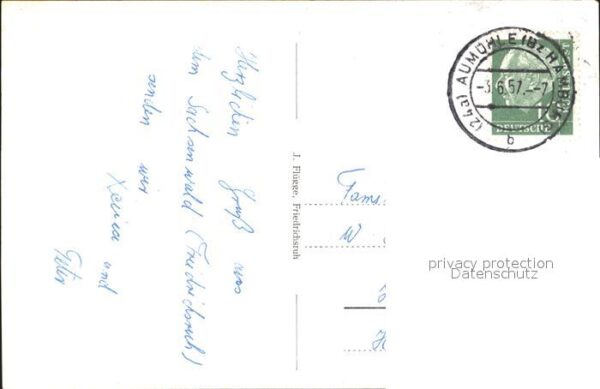 Herzlichen Gruß aus
dem Sachsenwald (Friedrichsruh)
senden wir
und
Peter
J. Flügge, Friedrichsruh
Fam.
W
(24a) AUMÜHLE (BZ HAMBURG)
-3.6.57.-7
b
10
DEUTSCHE
privacy protection
Datenschutz